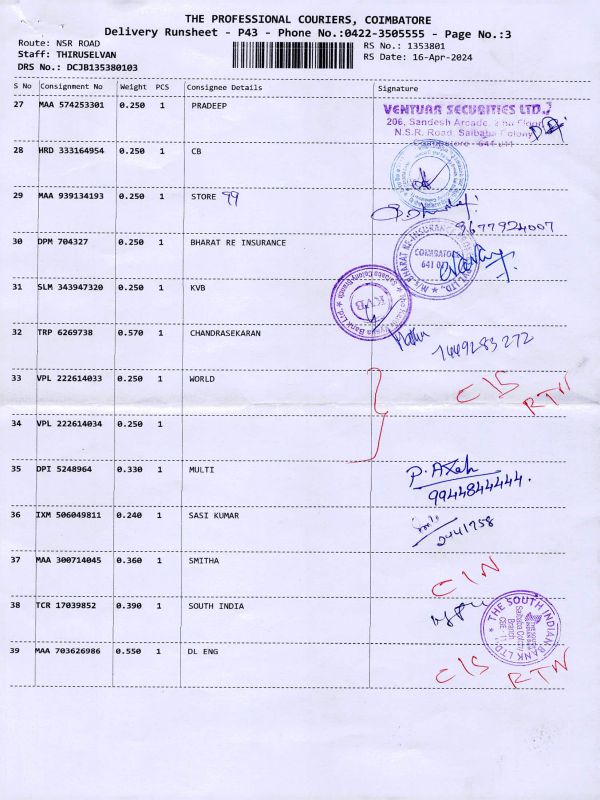 THE PROFESSIONAL COURIERS, COIMBATORE
Delivery Runsheet - P43 - Phone No.:0422-3505555 - Page No.:3
Route: NSR ROAD
RS No.: 1353801
Staff: THIRUSELVAN
RS Date: 16-Apr-2024
DRS No.: DCJB135380103
S No Consignment No Weight PCS Consignee Details Signature
27 MAA 574253301 0.250 1 PRADEEP
VENTURA SECURITIES LTD.,
206, Sandesh Arcade, 2nd Floor
N.S.R. Road, Saibaba Colony
Coimbatore - 641 011
28 HRD 333164954 0.250 1 CB
29 MAA 939134193 0.250 1 STORE 99
9677924007
30 DPM 704327 0.250 1 BHARAT RE INSURANCE
COIMBATORE
641 011
31 SLM 343947320 0.250 1 KVB
KVB
Saibaba Colony Branch
32 TRP 6269738 0.570 1 CHANDRASEKARAN
33 VPL 222614033 0.250 1 WORLD C/S RTN
34 VPL 222614034 0.250 1
35 DPI 5248964 0.330 1 MULTI
9944844444.
36 IXM 506049811 0.240 1 SASI KUMAR
2441758
37 MAA 300714045 0.360 1 SMITHA C/N
38 TCR 17039852 0.390 1 SOUTH INDIA
THE SOUTH INDIAN BANK LTD.
Saibaba Colony
Branch
CBE - 11
39 MAA 703626986 0.550 1 DL ENG C/S RTN